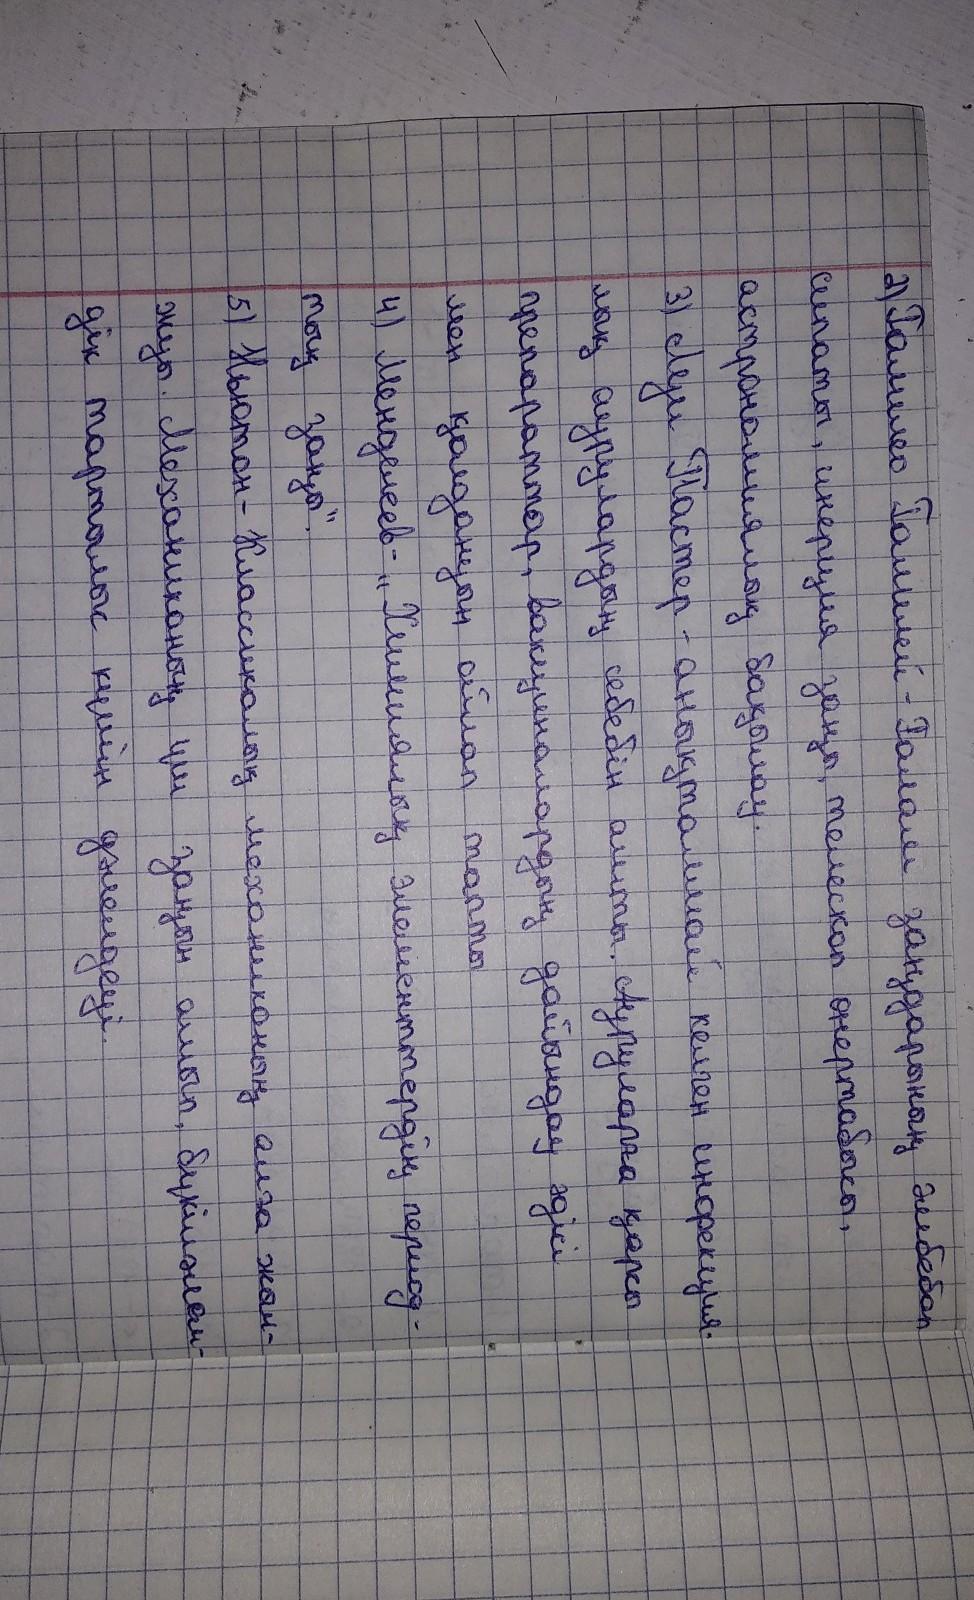 2) Галилео Галилей - Ғалам заңдарының әмбебап
сипаты, инерция заңы, телескоп өнертабысы,
астрономиялық бақылау.
3) Луи Пастер - анықталмай келген инфекция-
лық аурулардың себебін ашты. Ауруларға қарсы
препараттар, вакциналардың дайындау әдісі
мен қолдануын ойлап тапты
4) Менделеев - „Химиялық элементтердің период-
тық заңы".
5) Ньютон - Классикалық механиканың алға жыл-
жуы. Механиканың үш заңын ашып, бүкіләлем-
дік тартылыс күшін дәлелдеуі.